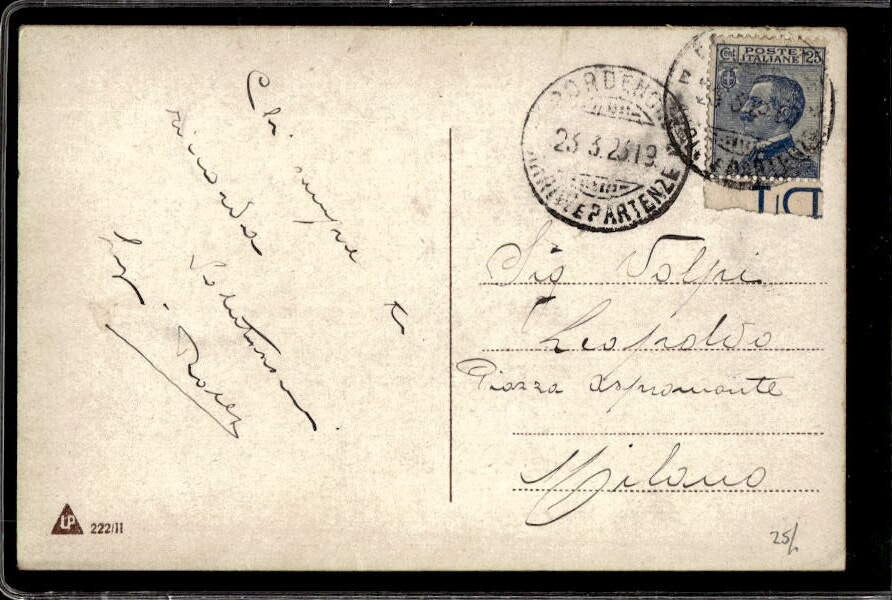 Chi sempre ti
ricorda
Luigi
PORDENONE
23.3.23 19
ARRIVI E PARTENZE
POSTE
ITALIANE
25
Sig Volpi
Leopoldo
Piazza Aspromonte
Milano
UP 222/II
25/